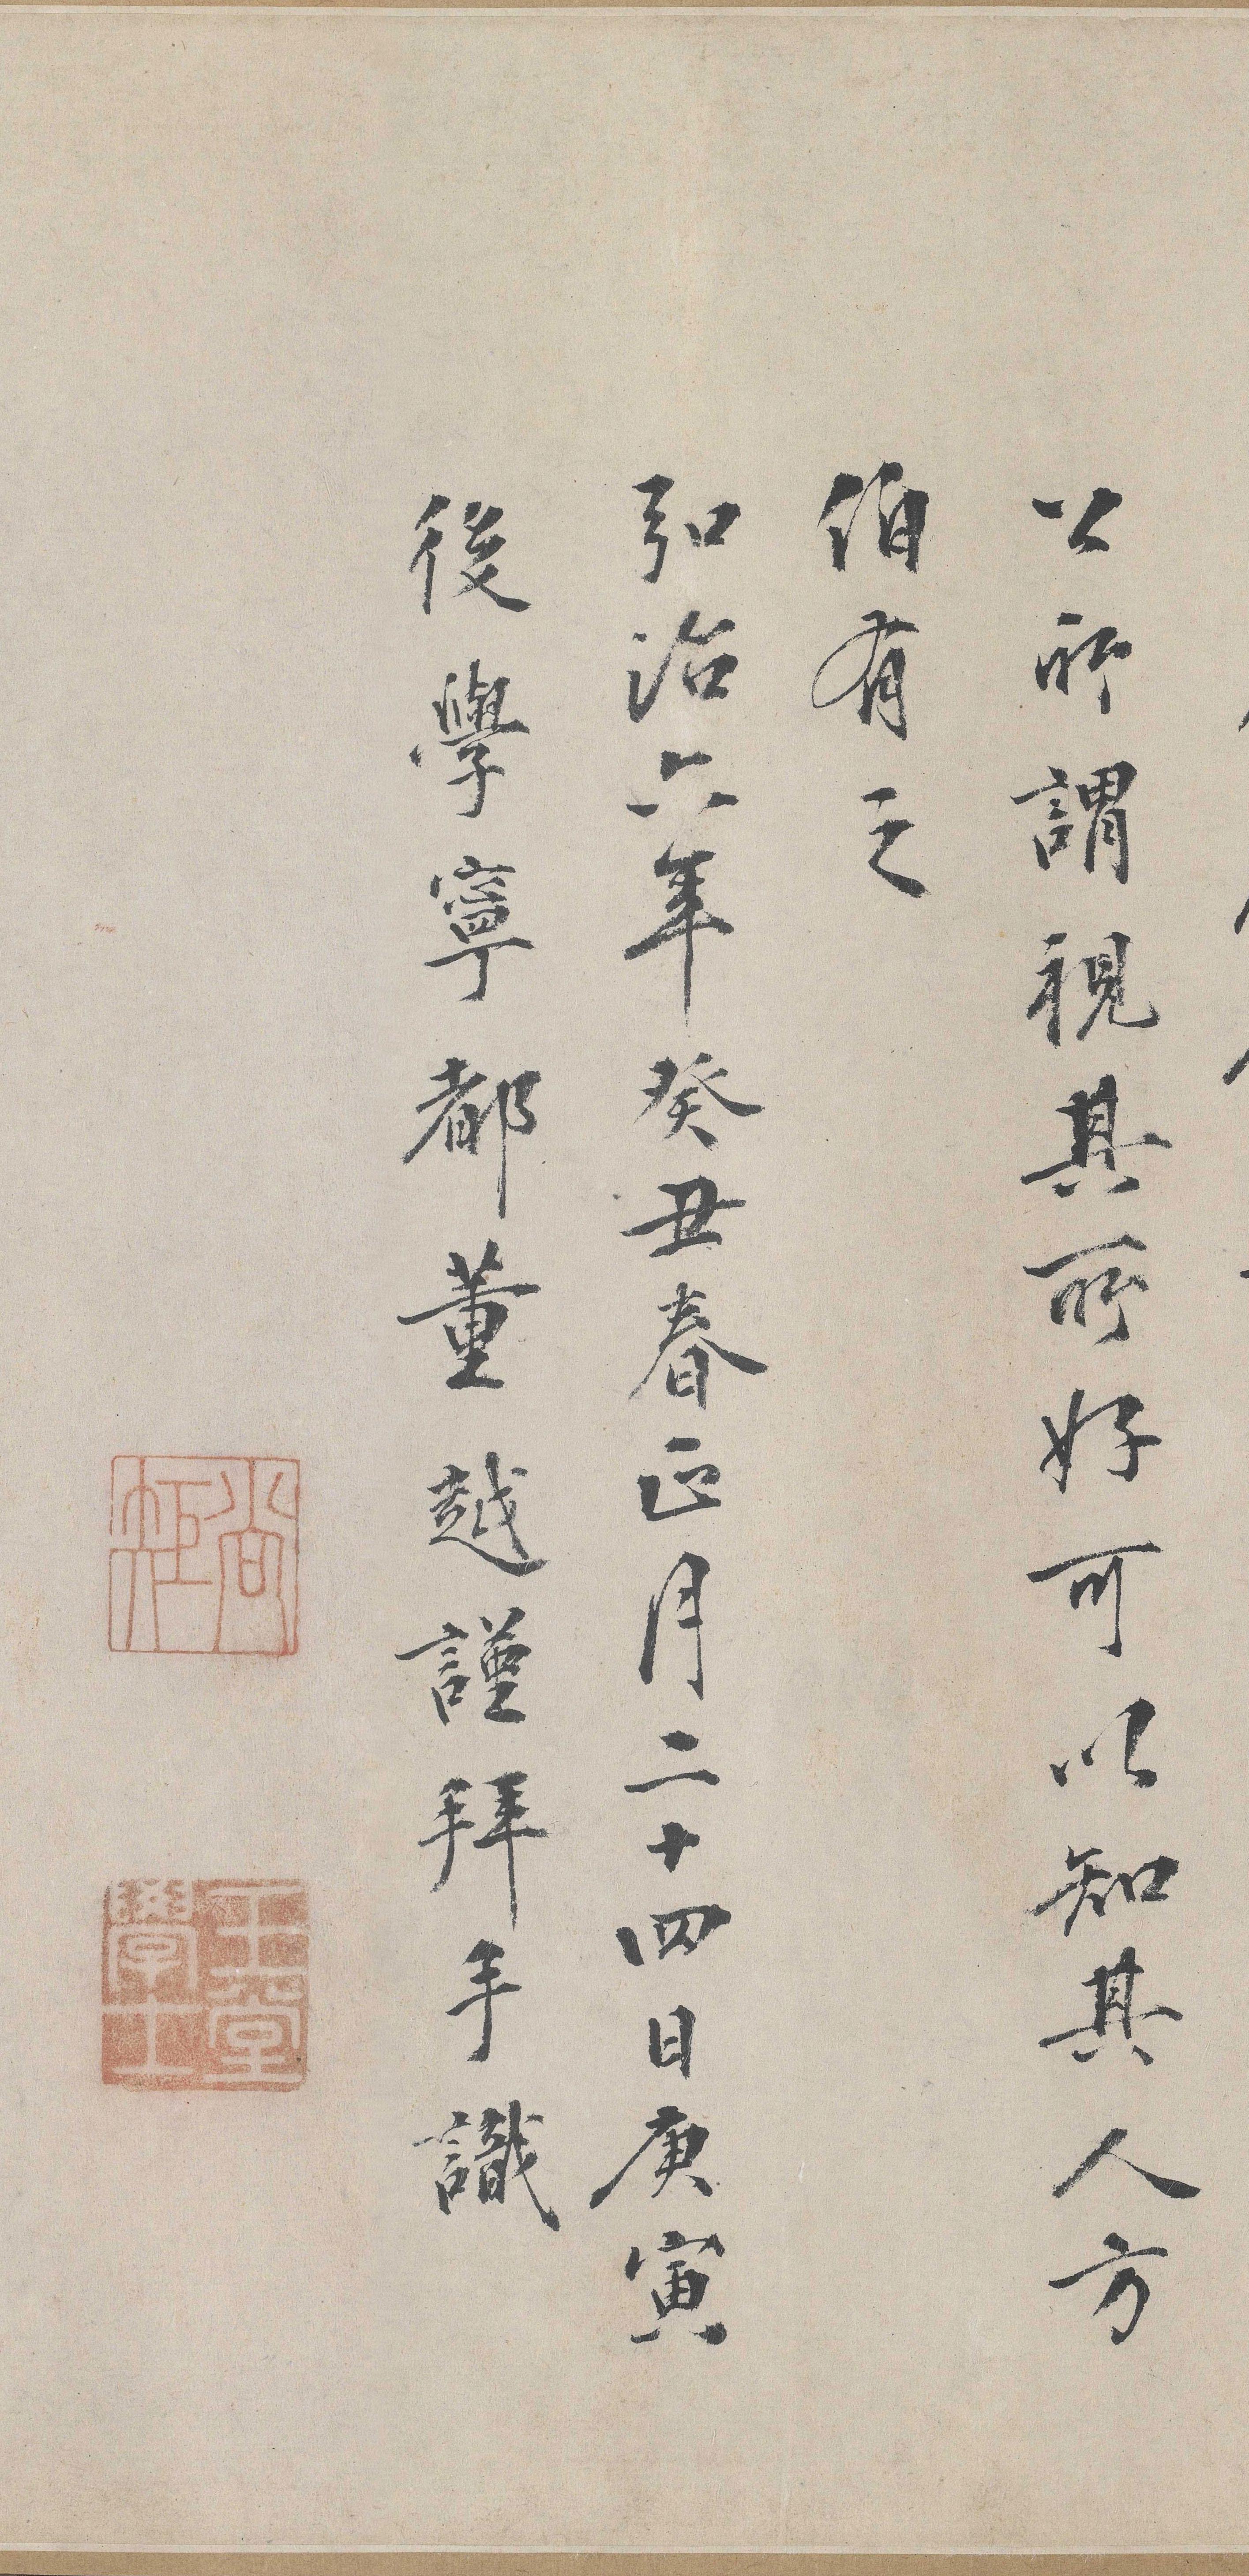 公所謂視其所好可以知其人方
伯有之
弘治六年癸丑春正月二十四日庚寅
後學寧都董越謹拜手識
尚矩
玉堂學士